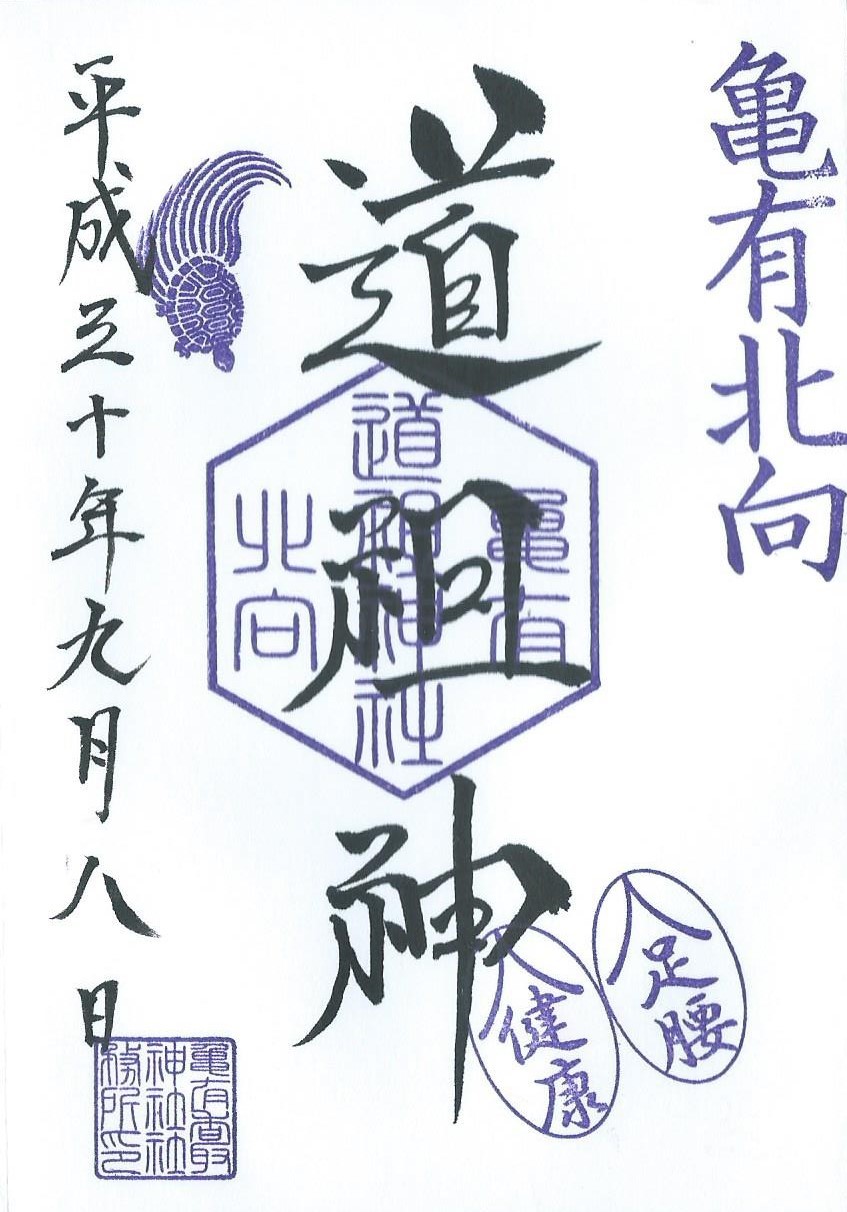 亀有北向
道祖神
亀有
道祖神神社
北向
足腰
健康
平成三十年九月八日
亀有香取
神社社
務所印